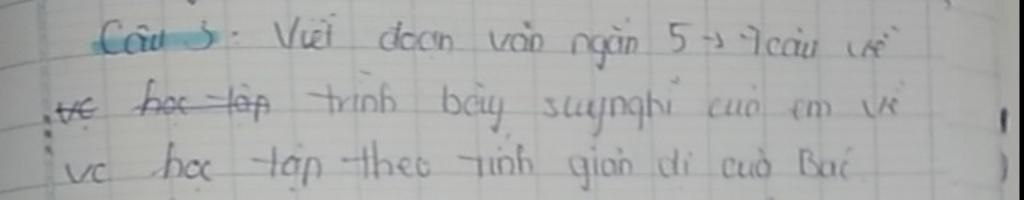 Câu 3: Viết đoạn văn ngắn 5 → 7 câu về
về học tập trình bày suy nghĩ của em về
vc học tập theo tính giản dị của Bác